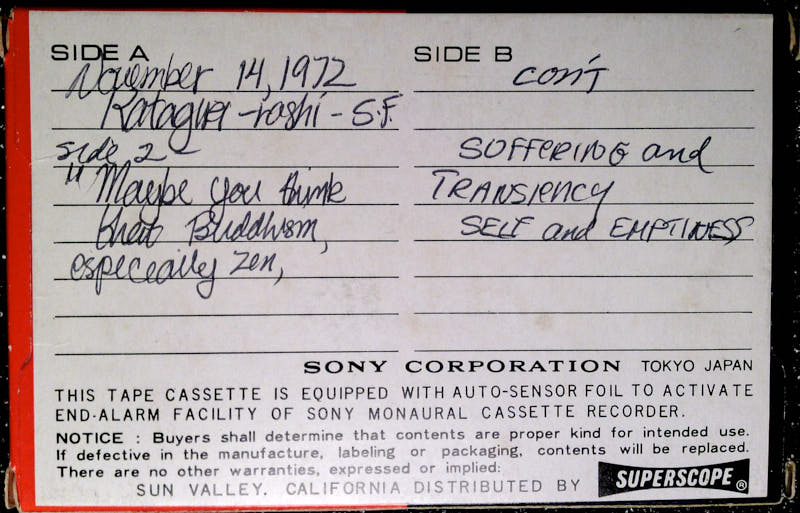 SIDE A
November 14, 1972
Katagiri-roshi - S.F.
side 2 -
" Maybe you think
that Buddhism,
especially Zen,
SIDE B
con't
SUFFERING and
TRANSIENCY
SELF and EMPTINESS
SONY CORPORATION TOKYO JAPAN
THIS TAPE CASSETTE IS EQUIPPED WITH AUTO-SENSOR FOIL TO ACTIVATE
END-ALARM FACILITY OF SONY MONAURAL CASSETTE RECORDER.
NOTICE : Buyers shall determine that contents are proper kind for intended use.
If defective in the manufacture, labeling or packaging, contents will be replaced.
There are no other warranties, expressed or implied:
SUN VALLEY. CALIFORNIA DISTRIBUTED BY SUPERSCOPE®